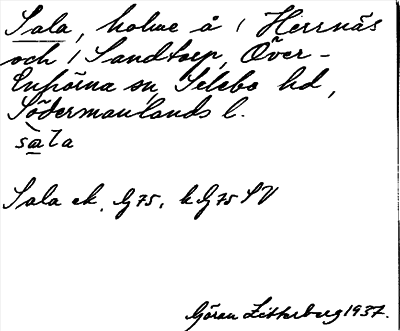 Sala, holme å / Herrnäs
och / Sandtorp, Över-
Enhörna sn, Selebo hd,
Södermanlands l.
sàla
Sala ek. G75, h G75 SV
Göran Zetterberg 1937.